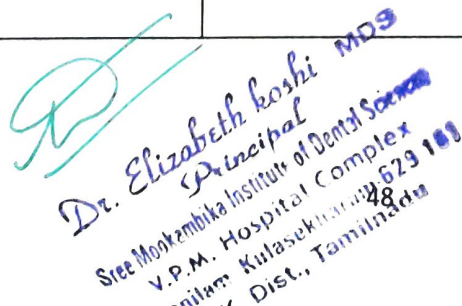 Dr. Elizabeth koshi MDS
Principal
Sree Mookambika Institute of Dental Sciences
V.P.M. Hospital Complex
629 161
48
Dist., Tamilnadu